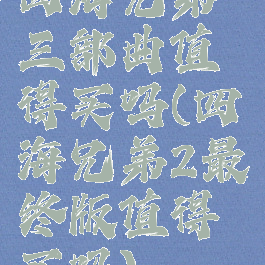 四海兄弟
三部曲值
得买吗(四
海兄弟2最
终版值得
买吗)